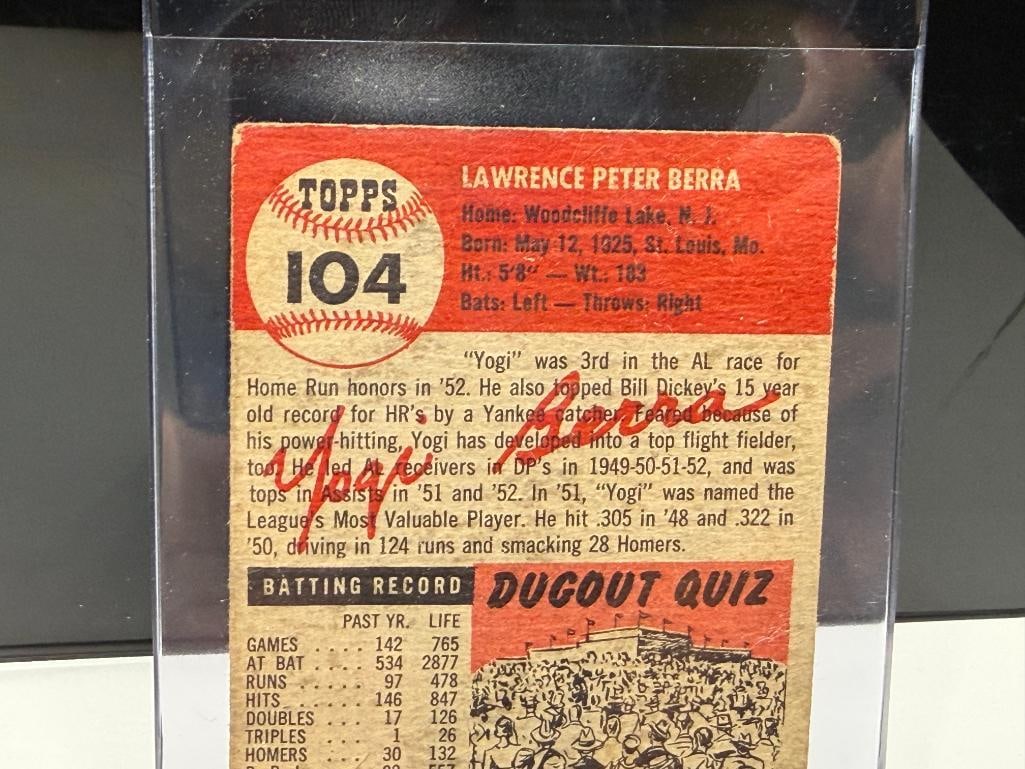 TOPPS
104
LAWRENCE PETER BERRA
Home: Woodcliffe Lake, N. J.
Born: May 12, 1925, St. Louis, Mo.
Ht.: 5'8" — Wt.: 183
Bats: Left — Throws: Right
"Yogi" was 3rd in the AL race for
Home Run honors in '52. He also topped Bill Dickey's 15 year
old record for HR's by a Yankee catcher. Feared because of
his power-hitting, Yogi has developed into a top flight fielder,
too! He led AL receivers in DP's in 1949-50-51-52, and was
tops in Assists in '51 and '52. In '51, "Yogi" was named the
League's Most Valuable Player. He hit .305 in '48 and .322 in
'50, driving in 124 runs and smacking 28 Homers.
Yogi Berra
BATTING RECORD
PAST YR. LIFE
GAMES .... 142 765
AT BAT .... 534 2877
RUNS ..... 97 478
HITS ...... 146 847
DOUBLES ... 17 126
TRIPLES ... 1 26
HOMERS ... 30 132
DUGOUT QUIZ